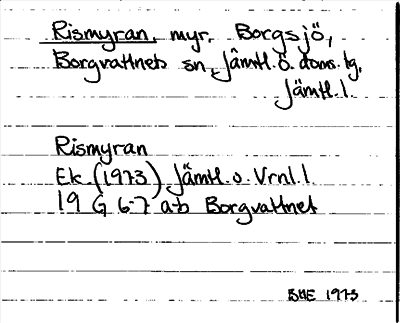 Rismyran, myr, Borgsjö,
Borgvattnets sn, Jämtl. ö. doms. tg,
Jämtl. l.
Rismyran
Ek. (1973) Jämtl. o. Vrnl. l.
19 G 6-7 a-b Borgvattnet
BHE 1973